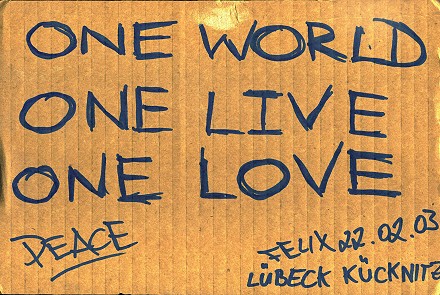 ONE WORLD
ONE LIVE
ONE LOVE
PEACE
FELIX 22.02.03
LÜBECK KÜCKNITZ